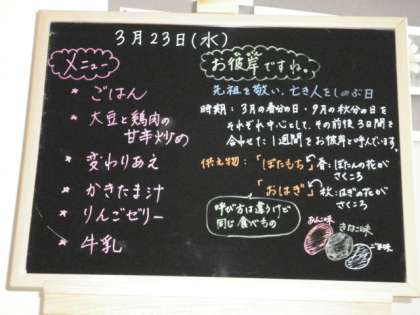 3月23日(水)
メニュー
* ごはん
* 大豆と鶏肉の
甘辛炒め
* 変わりあえ
* かきたま汁
* りんごゼリー
* 牛乳
お彼岸ですね。
先祖を敬い、亡き人をしのぶ日
時期：3月の春分の日・9月の秋分の日を
それぞれ中心として、その前後3日間を
合わせた1週間をお彼岸と呼んでいます。
供え物：「ぼたもち」春：ぼたんの花が
さくころ
「おはぎ」秋：はぎの花が
さくころ
呼び方は違うけど
同じ食べもの
あんこ味
きなこ味
ごま味